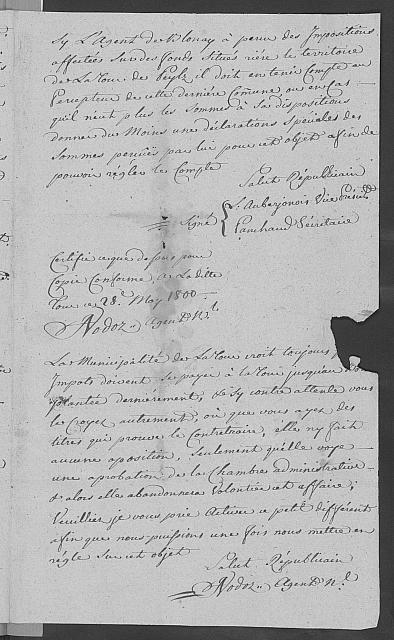 Sy L'Agent de Blonay à perçu des Impositions
affectées Sur des fonds Situés riére le territoire
de La Tour de Peylz il doit en tenir Compte au
Percepteur de cette derniére Comune ou en cas
qu'il n'eut plus les Sommes à Sa disposition
donner du Moins une déclarations Spéciales des
Sommes perçües par lui pour cet objet afin de
pouvoir régler le Compte
Salut Républicain
Signé { Auberjonois Vice Présid.t
Panchaud Sécrétaire
Certifié ce que dessus pour
Copie Conforme à La dite
Tour ce 28.e May 1800
Nodoz.. Agent N.l
La Municipalité de La Tour croit toujours
Impots doivent Se payer à la Tour jusqu'au
plantée derniérement, Sy contre attente vous
le Croyez autrement, où que vous ayez des
titres qui prouve le Contreraire, elle n'y fait
aucune aposition, Seulement qu'elle voye
une aprobation de la Chambre administrative
& alors elle abandonnera Volontiée cet affaire;
Veuillier je vous prie Activer ce petit différent
afin que nous puissions une fois nous mettre en
régle Sur cet objet
Salut Républicain
Nodoz.. Agent N.l